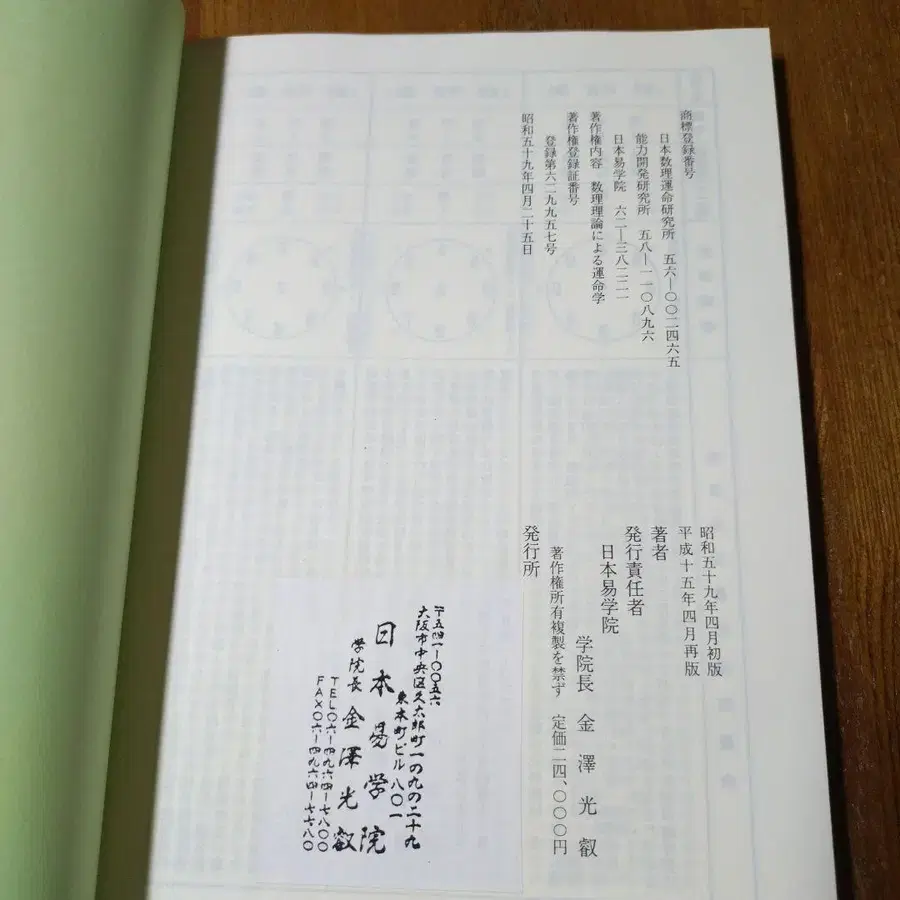 商標登録番号
日本数理運命研究所 五六―〇〇二四六五
能力開発研究所 五八―一一〇八九六
日本易学院 六二―三八二二一
著作権内容 数理理論による運命学
著作権登録証番号
登録第六二九九五七号
昭和五十九年四月二十五日
昭和五十九年四月初版
平成十五年四月再版
著者
発行責任者
日本易学院 学院長 金澤光叡
著作権所有複製を禁ず 定価二四、〇〇〇円
発行所
〒五四一―〇〇五六
大阪市中央区久太郎町一の九の二十九
東本町ビル 八〇一
日本易学院
学院長 金澤光叡
TEL〇六―四九六四―七八〇〇
FAX〇六―四九六四―七七八〇